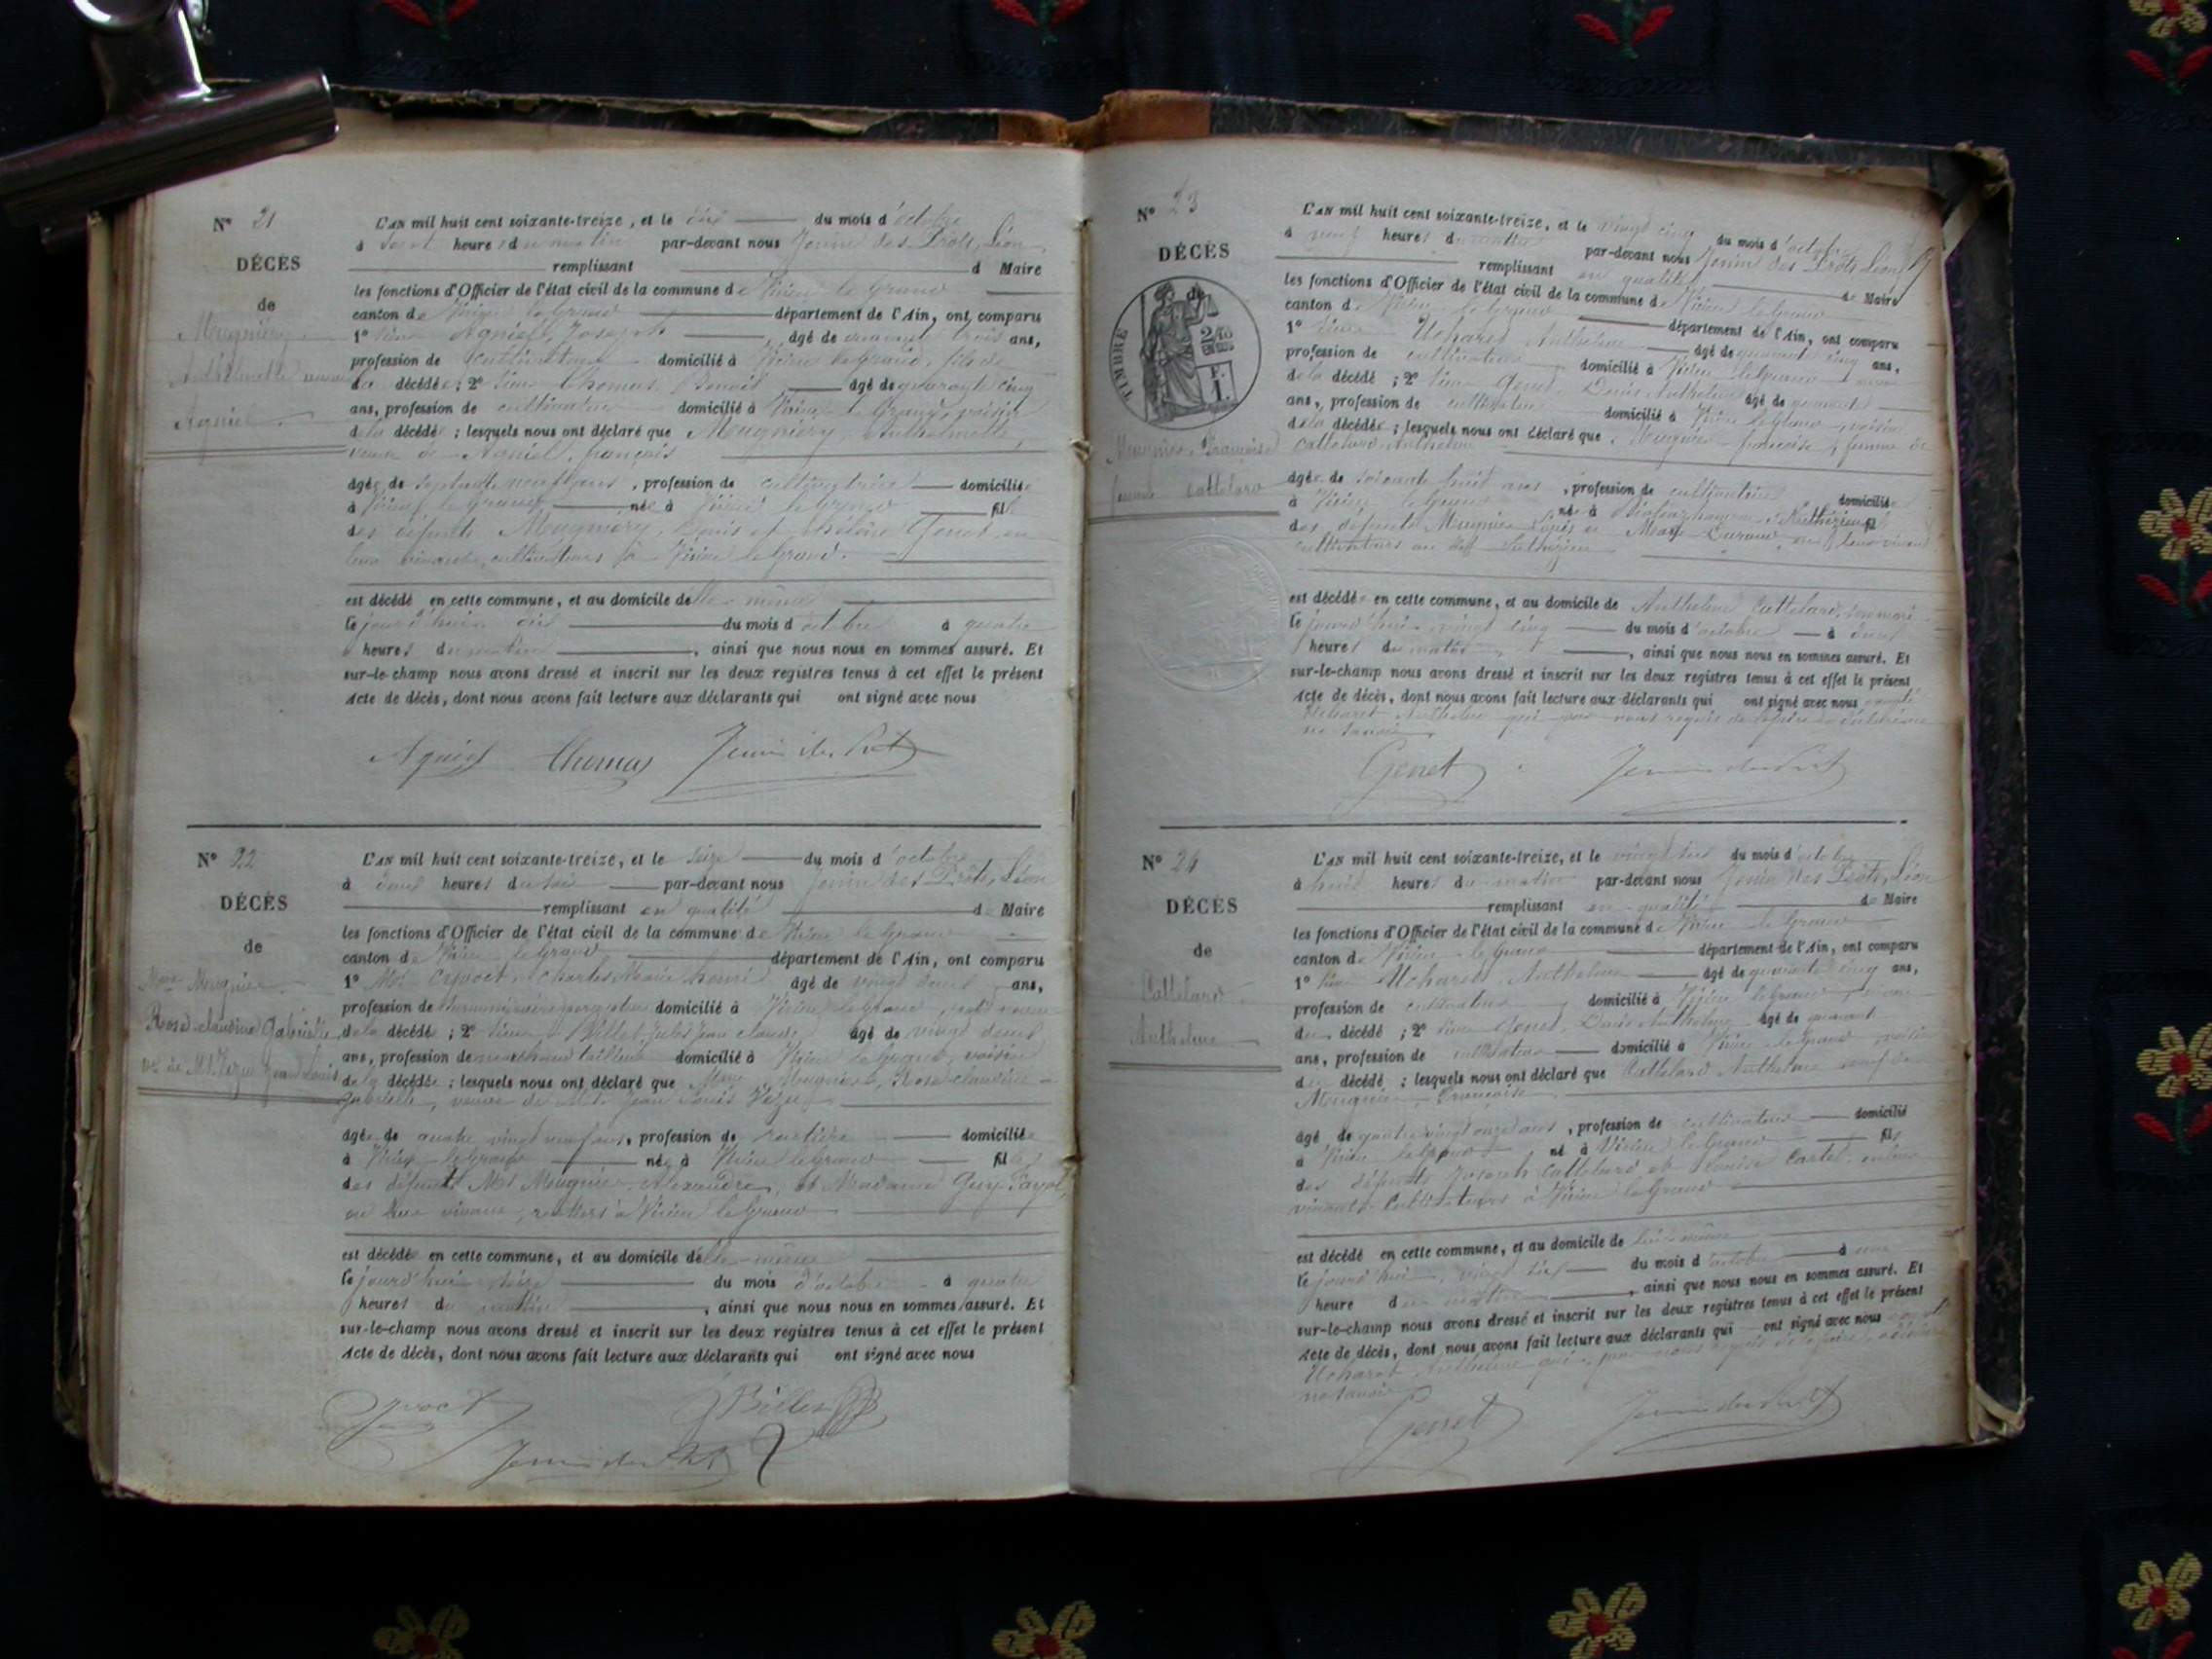 N° 21
DÉCÈS
de
Meugniery
Anthelmette veuve
Agniel
L'AN mil huit cent soixante-treize, et le dix du mois d'octobre
à sept heures du matin par-devant nous Jenin des Prôts, Léon
remplissant d Maire
les fonctions d'Officier de l'état civil de la commune de Virieu le Grand
canton de Virieu le Grand département de l'Ain, ont comparu
1° sieur Agniel, Joseph âgé de trois ans,
profession de cultivateur domicilié à Virieu le Grand, fils de
la décédée ; 2° sieur Thomas, Benoit âgé de quarante cinq
ans, profession de cultivateur domicilié à Virieu le Grand, voisin
de la décédée ; lesquels nous ont déclaré que Meugniery Anthelmette,
veuve de Agniel, françois
âgée de septante neuf ans, profession de cultivatrice domicilié
à Virieu le Grand, née à Virieu le Grand fil
des défunts Meugniery, Louis et Hélène Genet, en
leur vivant, cultivateurs à Virieu le Grand.
est décédé en cette commune, et au domicile d'elle-même
le jourd'hui dix du mois d'octobre à quatre
heures du matin, ainsi que nous nous en sommes assuré. Et
sur-le-champ nous avons dressé et inscrit sur les deux registres tenus à cet effet le présent
Acte de décès, dont nous avons fait lecture aux déclarants qui ont signé avec nous
Agniel Thomas Jenin des Prôts
N° 22
DÉCÈS
de
Mme Meugnier
Rose claudine Gabrielle
ve de Mr. Vezu Jean Louis
L'AN mil huit cent soixante-treize, et le seize du mois d'octobre
à deux heures du soir par-devant nous Jenin des Prôts, Léon
remplissant en qualité de Maire
les fonctions d'Officier de l'état civil de la commune de Virieu le Grand
canton de Virieu le Grand département de l'Ain, ont comparu
1° Mr. Charles Marie henri âgé de vingt deux ans,
profession de domicilié à Virieu le Grand,
de la décédée ; 2° sieur Billet, Jules Jean claude âgé de vingt deux
ans, profession de marchand tailleur domicilié à Virieu le Grand, voisin
de la décédée ; lesquels nous ont déclaré que Mme Meugnier, Rose claudine
gabrielle, veuve de Mr. Jean Louis Vezu
âgée de quatre vingt neuf ans, profession de rentière domicilié
à Virieu le Grand née à Virieu le Grand fil
des défunts Mr Meugnier, Alexandre, et Madame Guy Payot,
en leur vivant, rentiers à Virieu le Grand
est décédée en cette commune, et au domicile d'elle-même
le jourd'hui seize du mois d'octobre à quatre
heures du matin, ainsi que nous nous en sommes assuré. Et
sur-le-champ nous avons dressé et inscrit sur les deux registres tenus à cet effet le présent
Acte de décès, dont nous avons fait lecture aux déclarants qui ont signé avec nous
J Billet
Jenin des Prôts
N° 23
DÉCÈS
de
TIMBRE
Meugnier, Françoise
femme Cattelard
L'AN mil huit cent soixante-treize, et le vingt cinq du mois d'octobre
à neuf heures du matin par-devant nous Jenin des Prôts Léon
remplissant en qualité de Maire
les fonctions d'Officier de l'état civil de la commune de Virieu le Grand
canton de Virieu le Grand département de l'Ain, ont comparu
1° sieur Ucharet Anthelme âgé de quarante cinq ans,
profession de cultivateur domicilié à Virieu le Grand
de la décédé ; 2° sieur Genet Denis Anthelme âgé de quarante
ans, profession de cultivateur domicilié à Virieu le Grand, voisin
de la décédée ; lesquels nous ont déclaré que Meugnier françoise, femme de
Cattelard Anthelme
âgée de soixante huit ans, profession de cultivatrice domicilié
à Virieu le Grand né à fil
des défunts Meugnier Louis et Marie Durand en leur vivant
cultivateurs au
est décédée en cette commune, et au domicile de Anthelme Cattelard, son mari
le jourd'hui vingt cinq du mois d'octobre à deux
heures du matin, ainsi que nous nous en sommes assuré. Et
sur-le-champ nous avons dressé et inscrit sur les deux registres tenus à cet effet le présent
Acte de décès, dont nous avons fait lecture aux déclarants qui ont signé avec nous excepté
Ucharet Anthelme qui par nous requis de le faire a déclaré
ne savoir
Genet Jenin des Prôts
N° 24
DÉCÈS
de
Cattelard
Anthelme
L'AN mil huit cent soixante-treize, et le vingt six du mois d'octobre
à huit heures du matin par-devant nous Jenin des Prôts, Léon
remplissant en qualité de Maire
les fonctions d'Officier de l'état civil de la commune de Virieu le Grand
canton de Virieu le Grand département de l'Ain, ont comparu
1° sieur Ucharet Anthelme âgé de quarante cinq ans,
profession de cultivateur domicilié à Virieu le Grand,
du décédé ; 2° sieur Genet, Denis Anthelme âgé de quarante
ans, profession de cultivateur domicilié à Virieu le Grand, voisin
du décédé ; lesquels nous ont déclaré que Cattelard Anthelme veuf de
Meugnier Françoise
âgé de quatre vingt onze ans, profession de cultivateur domicilié
à Virieu le Grand né à Virieu le Grand fils
des défunts Joseph Cattelard et Louise Cartet, en leur
vivant Cultivateurs à Virieu le Grand
est décédé en cette commune, et au domicile de lui-même
le jourd'hui, vingt six du mois d'octobre à une
heure du matin, ainsi que nous nous en sommes assuré. Et
sur-le-champ nous avons dressé et inscrit sur les deux registres tenus à cet effet le présent
Acte de décès, dont nous avons fait lecture aux déclarants qui ont signé avec nous excepté
Ucharet Anthelme qui par nous requis de le faire a déclaré
ne savoir
Genet Jenin des Prôts